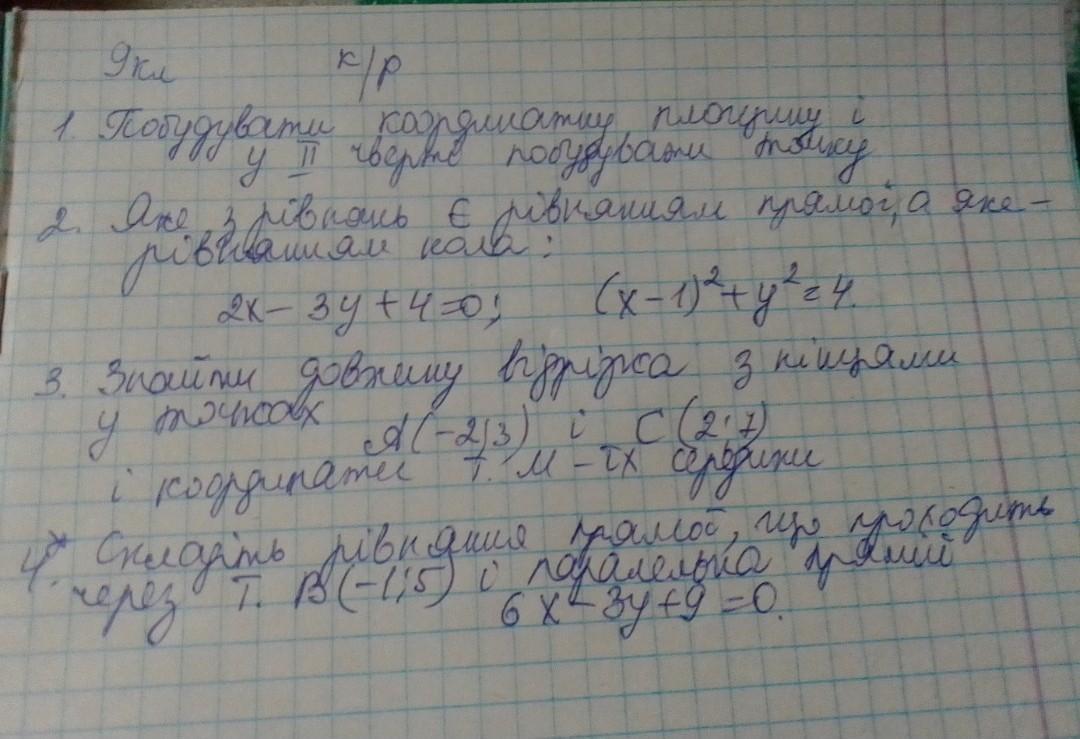 9кл к/р
1. Побудувати координатну площину і
у II чверті побудувати точку
2. Яке з рівнянь є рівнянням прямої, а яке –
рівнянням кола:
2x – 3y + 4 = 0; (x – 1)² + y² = 4.
3. Знайти довжину відрізка з кінцями
у точках
A(–2;3) і C(2;7)
і координати т. M – їх середини
4*. Складіть рівняння прямої, що проходить
через т. B(–1;5) і паралельна прямій
6x – 3y + 9 = 0.